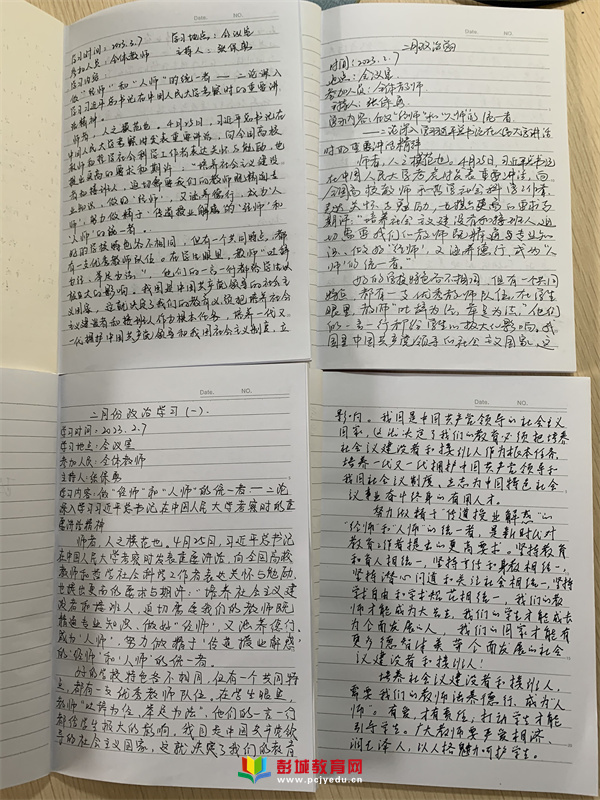 Date. NO.
学习时间: 2023.2.7 学习地点: 会议室
参加人员: 全体教师 主持人: 张保
学习内容:
做"经师"和"人师"的统一者——二论深入
学习习近平总书记在中国人民大学考察时的重要讲
话精神
师者,人之模范也。4月25日,习近平总书记在
中国人民大学考察时发表重要讲话,向全国高校
教师和哲学社会科学工作者表达关怀与勉励,也
提出更高的要求和期许:"培养社会主义建设
者和接班人,迫切需要我们的教师既精通专
业知识、做好'经师',又涵养德行、成为'人
师',努力做精于'传道授业解惑'的'经师'和
'人师'的统一者。"
好的学校特色各不相同,但有一个共同特点,都
有一支优秀教师队伍。在学生眼里,教师"吐辞
为经、举足为法",他们的一言一行都给学生以
极大的影响。我国是中国共产党领导的社会主
义国家,这就决定了我们的教育必须把培养社会
主义建设者和接班人作为根本任务,培养一代又
一代拥护中国共产党领导和我国社会主义制度、立
Date. NO.
二月政治学习
时间: 2023.2.7
地点: 会议室
参加人员: 全体教师
主持人: 张保
学习内容: 做"经师"和"人师"的统一者
——二论深入学习习近平总书记在人民大学讲话
时的重要讲话精神
师者,人之模范也。4月25日,习近平总书记
在中国人民大学考察时发表重要讲话,向
全国高校教师和哲学社会科学工作者
表达关怀与勉励,也提出更高的要求和
期许:"培养社会主义建设者和接班人,迫
切需要我们的教师既精通专业知
识、做好'经师',又涵养德行,成为'人
师'的统一者。
好的学校特色各不相同,但有一个共同
特点,都有一支优秀教师队伍。在学生
眼里,教师"吐辞为经、举足为法。"他们
的一言一行都给学生以极大的影响。我
国是中国共产党领导的社会主义国家,这
Date. NO.
二月份政治学习(一).
学习时间: 2023.2.7
学习地点: 会议室
参加人员: 全体教师
主持人: 张保
学习内容: 做"经师"和"人师"的统一者——二论
深入学习习近平总书记在中国人民大学考察时的重
要讲话精神
师者,人之模范也,4月25日,习近平总书记
在中国人民大学考察时发表重要讲话,向全国高校
教师和哲学社会科学工作者表达关怀与勉励,
也提出更高的要求与期许:"培养社会主义建
设者和接班人,迫切需要我们的教师既
精通专业知识、做好"经师",又涵养德行、
成为"人师",努力做精于"传道授业解惑"
的"经师"和"人师"的统一者。
好的学校特色各不相同,但有一个共同特
点,都有一支优秀教师队伍,在学生眼里,
教师"吐辞为经,举足为法",他们的一言一行
都给学生极大的影响,我国是中国共产党领
导的社会主义国家,这就决定了我们的教育
Date. NO.
影响。我国是中国共产党领导的社会主义
国家,这就决定了我们的教育必须把培养
社会主义建设者和接班人作为根本任务,
培养一代又一代拥护中国共产党领导和
我国社会主义制度、立志为中国特色社会
主义事业奋斗终身的有用人才。
努力做精于"传道授业解惑"的
"经师"和"人师"的统一者,是新时代对
教育工作者提出的更高要求。坚持教育
和育人相统一,坚持言传和身教相统一,
坚持潜心问道和关注社会相统一,坚持
学术自由和学术规范相统一,我们的教
师才能成为大先生,我们的学生才能成长
为全面发展的人,我们的国家才能有
更多德智体美劳全面发展的社会
主义建设者和接班人!
培养社会主义建设者和接班人,
需要我们的教师涵养德行,成为"人
师"。有爱,才有责任,打动学生才能
引导学生。广大教师要严爱相济、
润己泽人,以人格魅力呵护学生。
彭城教育网
www.pcjyedu.cn